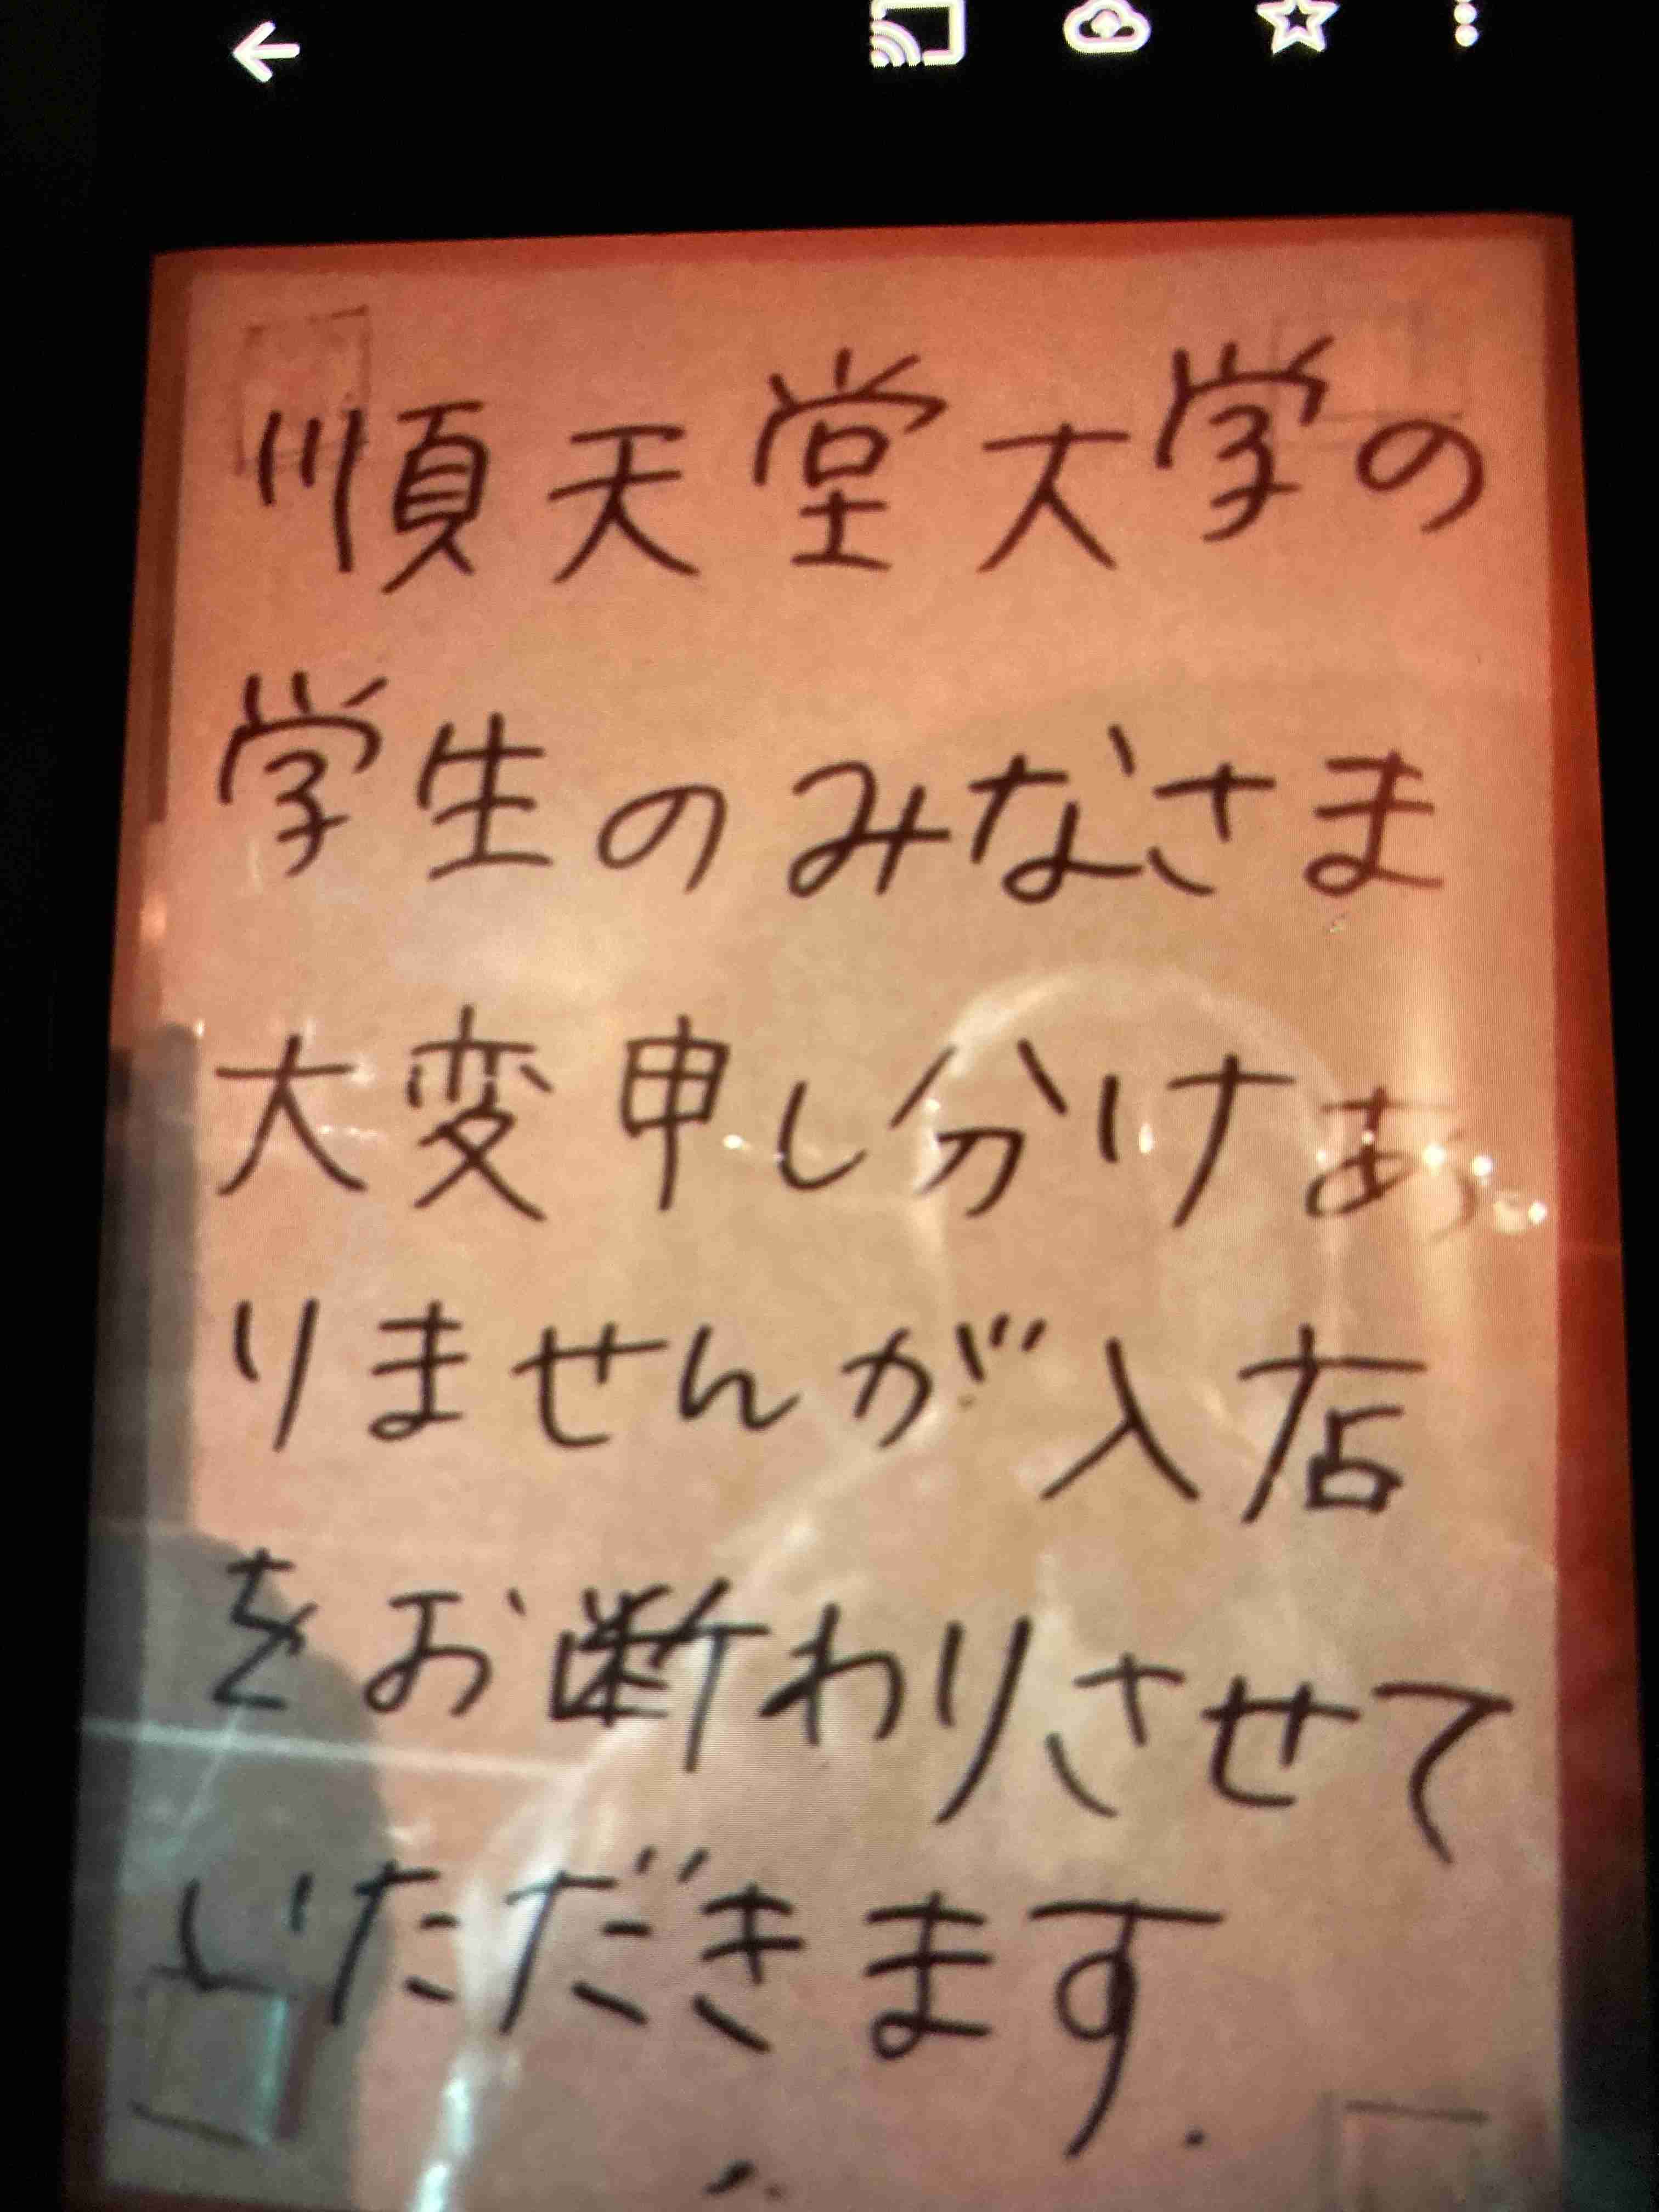 順天堂大学の
学生のみなさま
大変申し分けあ
りませんが入店
をお断わりさせて
いただきます.